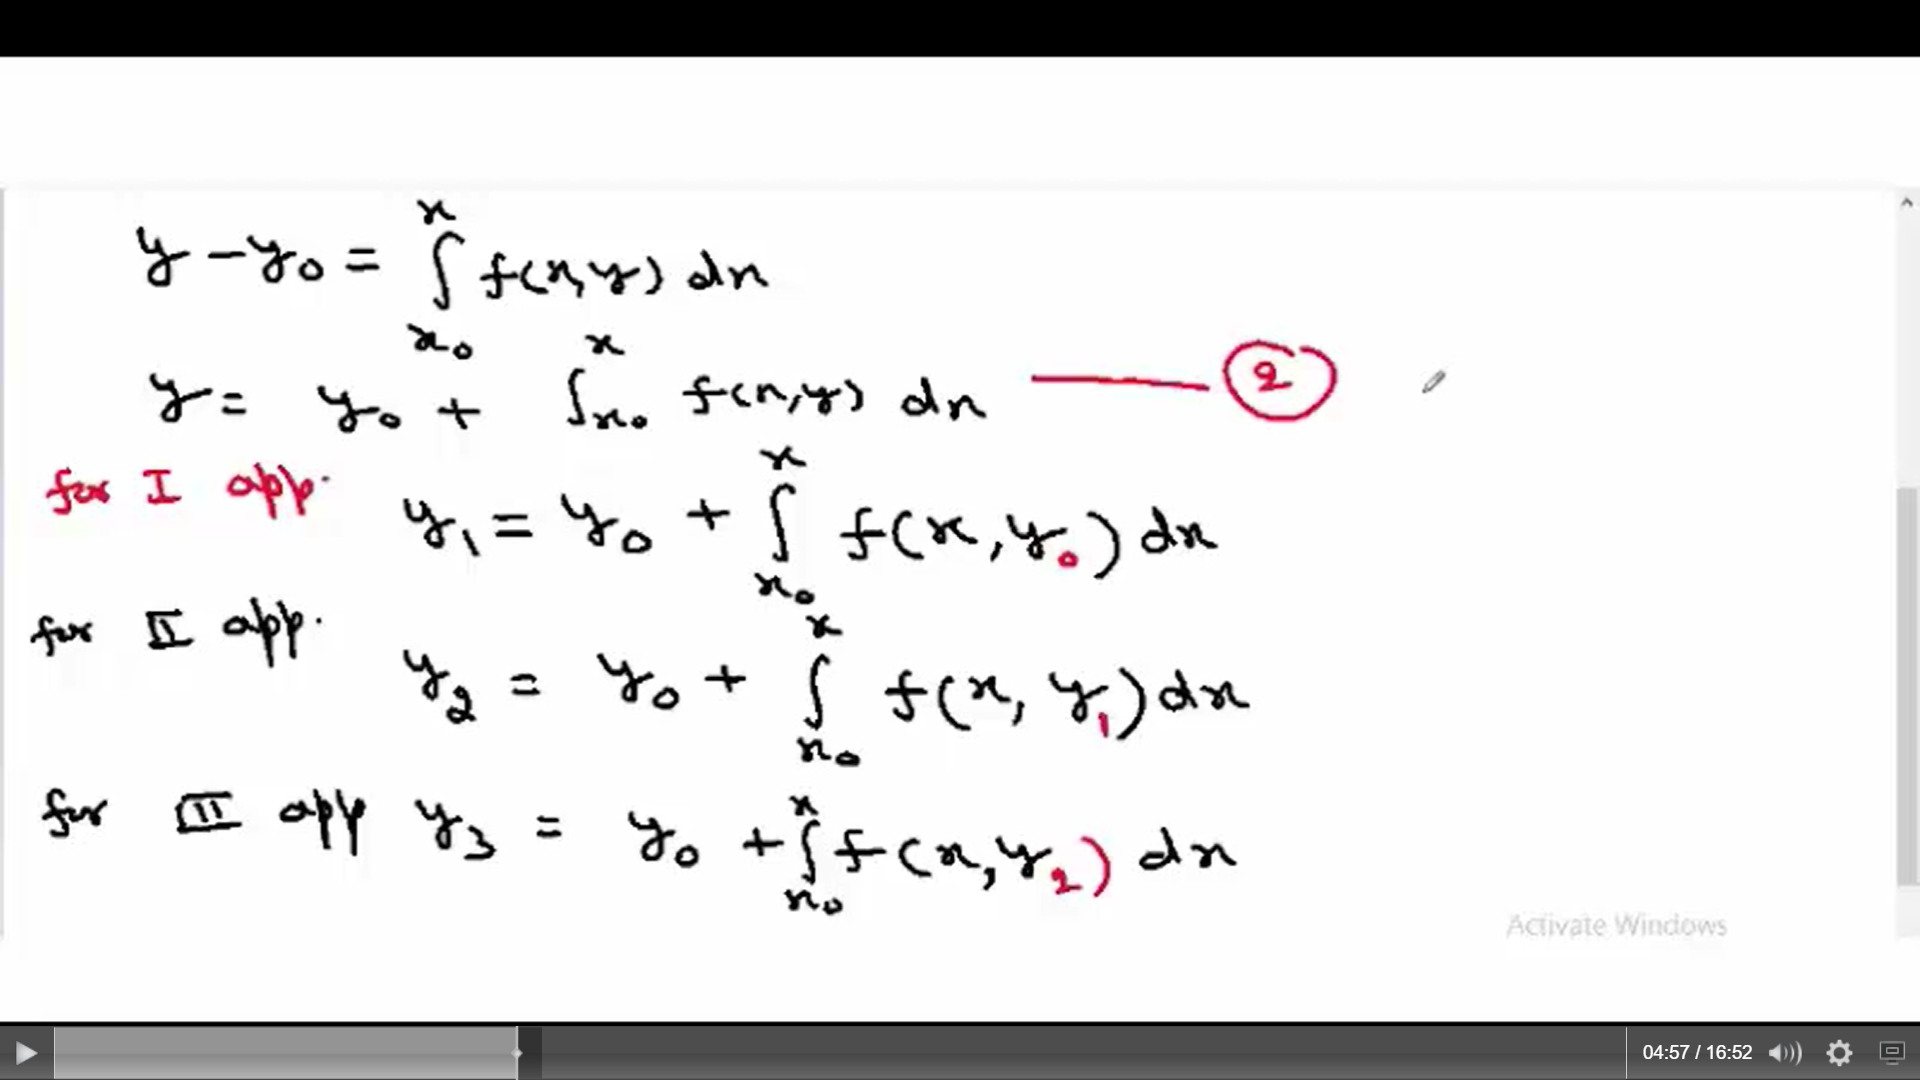 y - y₀ = ∫ₓ₀ˣ f(x,y) dx
y = y₀ + ∫ₓ₀ˣ f(x,y) dx —— ②
for I app.
y₁ = y₀ + ∫ₓ₀ˣ f(x,y₀) dx
for II app.
y₂ = y₀ + ∫ₓ₀ˣ f(x, y₁) dx
for III app y₃ = y₀ + ∫ₓ₀ˣ f(x,y₂) dx
Activate Windows
04:57 / 16:52